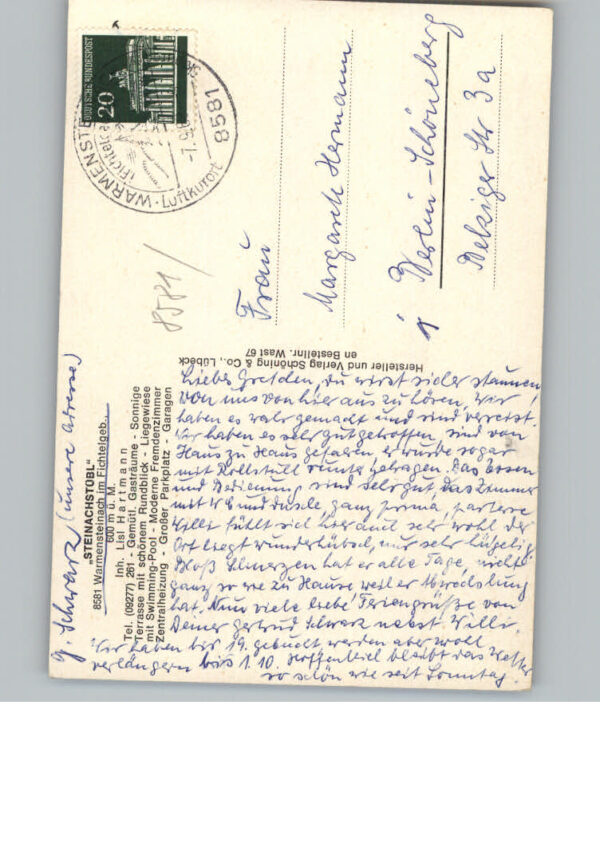 DEUTSCHE BUNDESPOST
20
WARMENSTE
(Fichtelge
Luftkurort
8581
-7.
8581/
Frau
Margarete Hermann
1 Berlin-Schöneberg
Belziger Str 3a
Hersteller und Verlag Schöning & Co., Lübeck
en Bestellnr. Wast 67
G. Schwarz (unsere Adresse)
"STEINACHSTÜBL"
8581 Warmensteinach im Fichtelgeb.
600 m ü. M.
Inh. Lisl Hartmann
Tel. (09277) 261 - Gemütl. Gasträume - Sonnige
Terrasse mit schönem Rundblick - Liegewiese
mit Swimming-Pool - Moderne Fremdenzimmer
Zentralheizung - Großer Parkplatz - Garagen
Liebes Gretchen, du wirst sicher staunen
von uns von hier aus zu hören, wir
haben es wahr gemacht und sind verreist.
Wir haben es sehr gut getroffen, sind von
Haus zu Haus gefahren, er wurde sogar
mit Rollstuhl runter getragen. Das Essen
und Bedienung sind sehr gut, das Zimmer
mit WC und Dusche, ganz prima, parterre
Willi fühlt sich hier auch sehr wohl der
Ort liegt wunderhübsch, nur sehr hügelig.
Bloß Schmerzen hat er alle Tage, nicht
ganz so wie zu Hause weil er Abwechslung
hat. Nun viele liebe Feriengrüße von
Deiner Gertrud Schwarz nebst Willi.
Wir haben bis 19. gebucht werden aber wohl
verlängern bis 1.10. Hoffentlich bleibt das Wetter
so schön wie seit Sonntag.